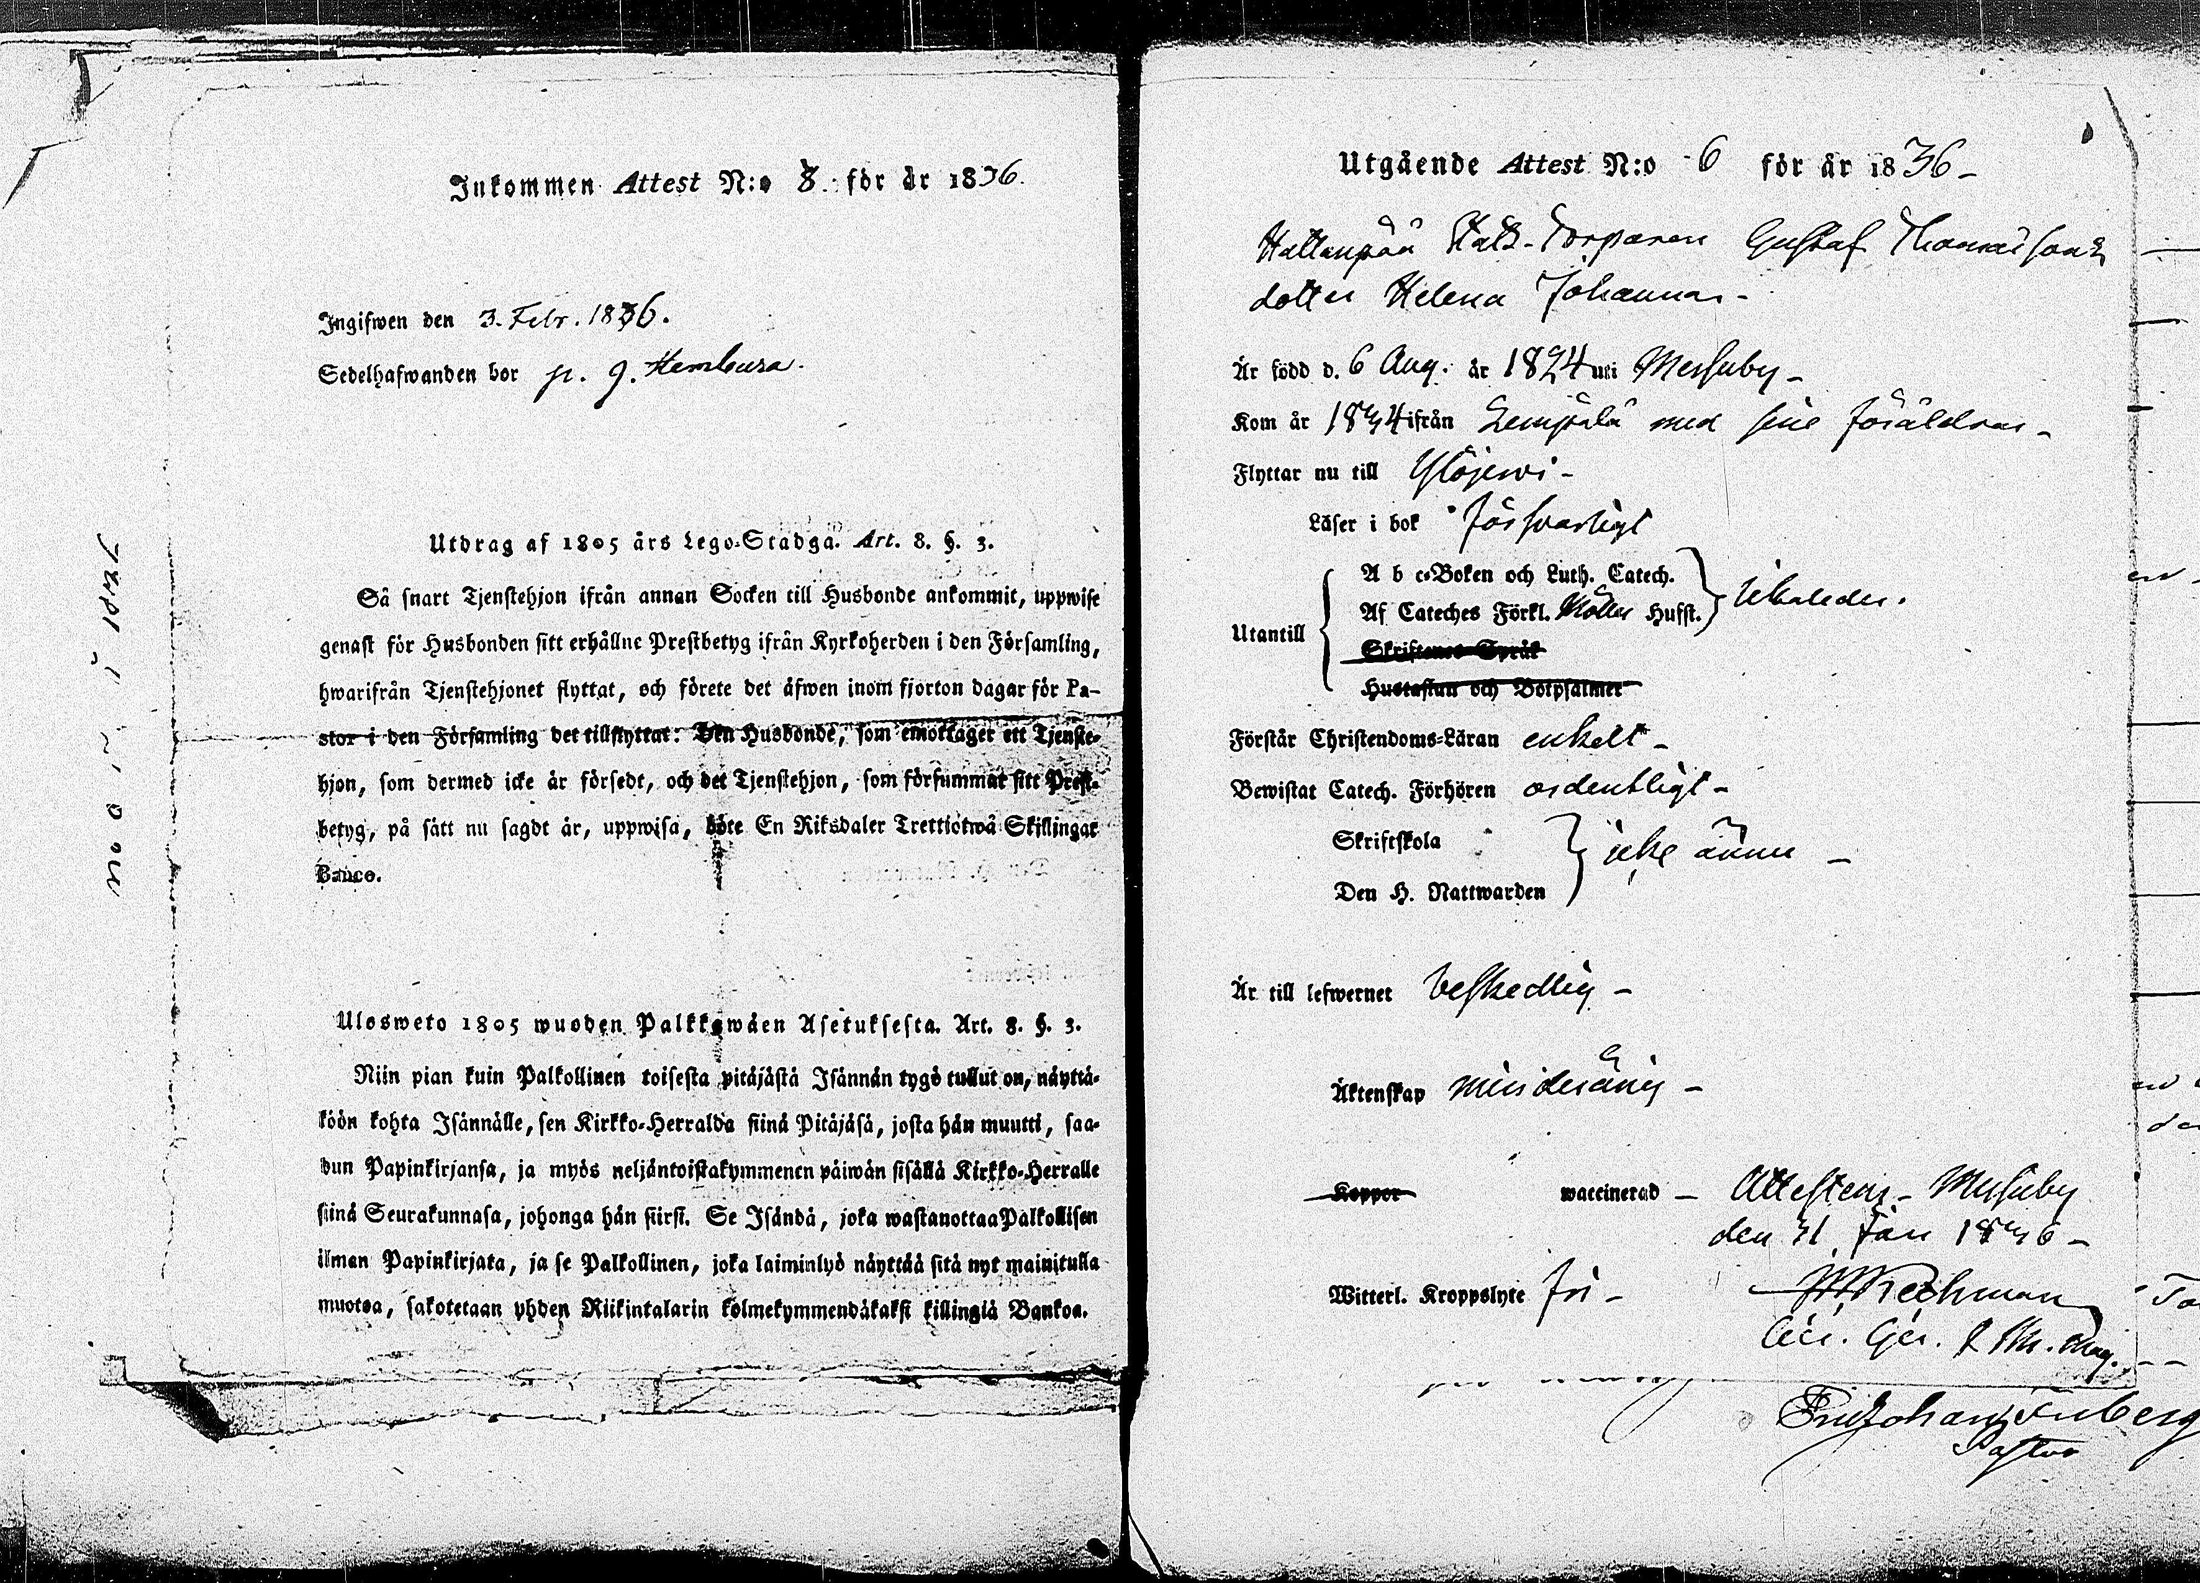 Inkommen Attest N:o 8. för år 1836.
Ingifwen den 3. Febr. 1836.
Sedelhafwanden bor p. g.
Utdrag af 1805 års Lego-Stadga. Art. 8. §. 3.
Så snart Tjenstehjon ifrån annan Socken till Husbonde ankommit, uppwise
genast för Husbonden sitt erhållne Prestbetyg ifrån Kyrkoherden i den Församling,
hwarifrån Tjenstehjonet flyttat, och förete det äfwen inom fjorton dagar för Pa-
stor i den Församling det tillflyttat: Den Husbonde, som emottager ett Tjenste-
hjon, som dermed icke är försedt, och det Tjenstehjon, som försummat sitt Prest-
betyg, på sätt nu sagdt är, uppwisa, böte En Riksdaler Trettiotwå Skillingar
Banco.
Ulosweto 1805 wuoden Palkkawäen Asetuksesta. Art. 8. §. 3.
Niin pian kuin Palkollinen toisesta pitäjästä Isännän tygö tullut on, näyttä-
köön kohta Isännälle, sen Kirkko-Herralda siinä Pitäjäsä, josta hän muutti, saa-
dun Papinkirjansa, ja myös neljäntoistakymmenen päiwän sisällä Kirkko-Herralle
siinä Seurakunnasa, johonga hän siirsi. Se Isändä, joka wastanottaa Palkollisen
ilman Papinkirjata, ja se Palkollinen, joka laiminlyö näyttää sitä nyt mainitulla
muotoa, sakotetaan yhden Riikintalarin kolmekymmendäkaksi killingiä Bankoa.
Utgående Attest N:o 6 för år 1836
Hattanpää Stats-Torparen Gustaf Thomassons
dotter Helena Johanna
Är född d. 6 Aug. år 1824 uti Messuby
Kom år 1834 ifrån Lempälä med sine föräldrar
Flyttar nu till Ylöjerwi
Läser i bok försvarligt
Utantill
A b c-Boken och Luth. Catech.
Af Cateches Förkl. Möllers Husst.
Skriftenes Språk
Hustaflan och Botpsalmer
Förstår Christendoms-Läran enkelt
Bewistat Catech. Förhören ordentligt
Skriftskola
icke ännu
Den H. Nattwarden
Är till lefwernet beskedlig
Äktenskap minderårig
Koppor waccinerad Attesterar Messuby
den 31 Jan 1836
Witterl. Kroppslyte fri
Pastor